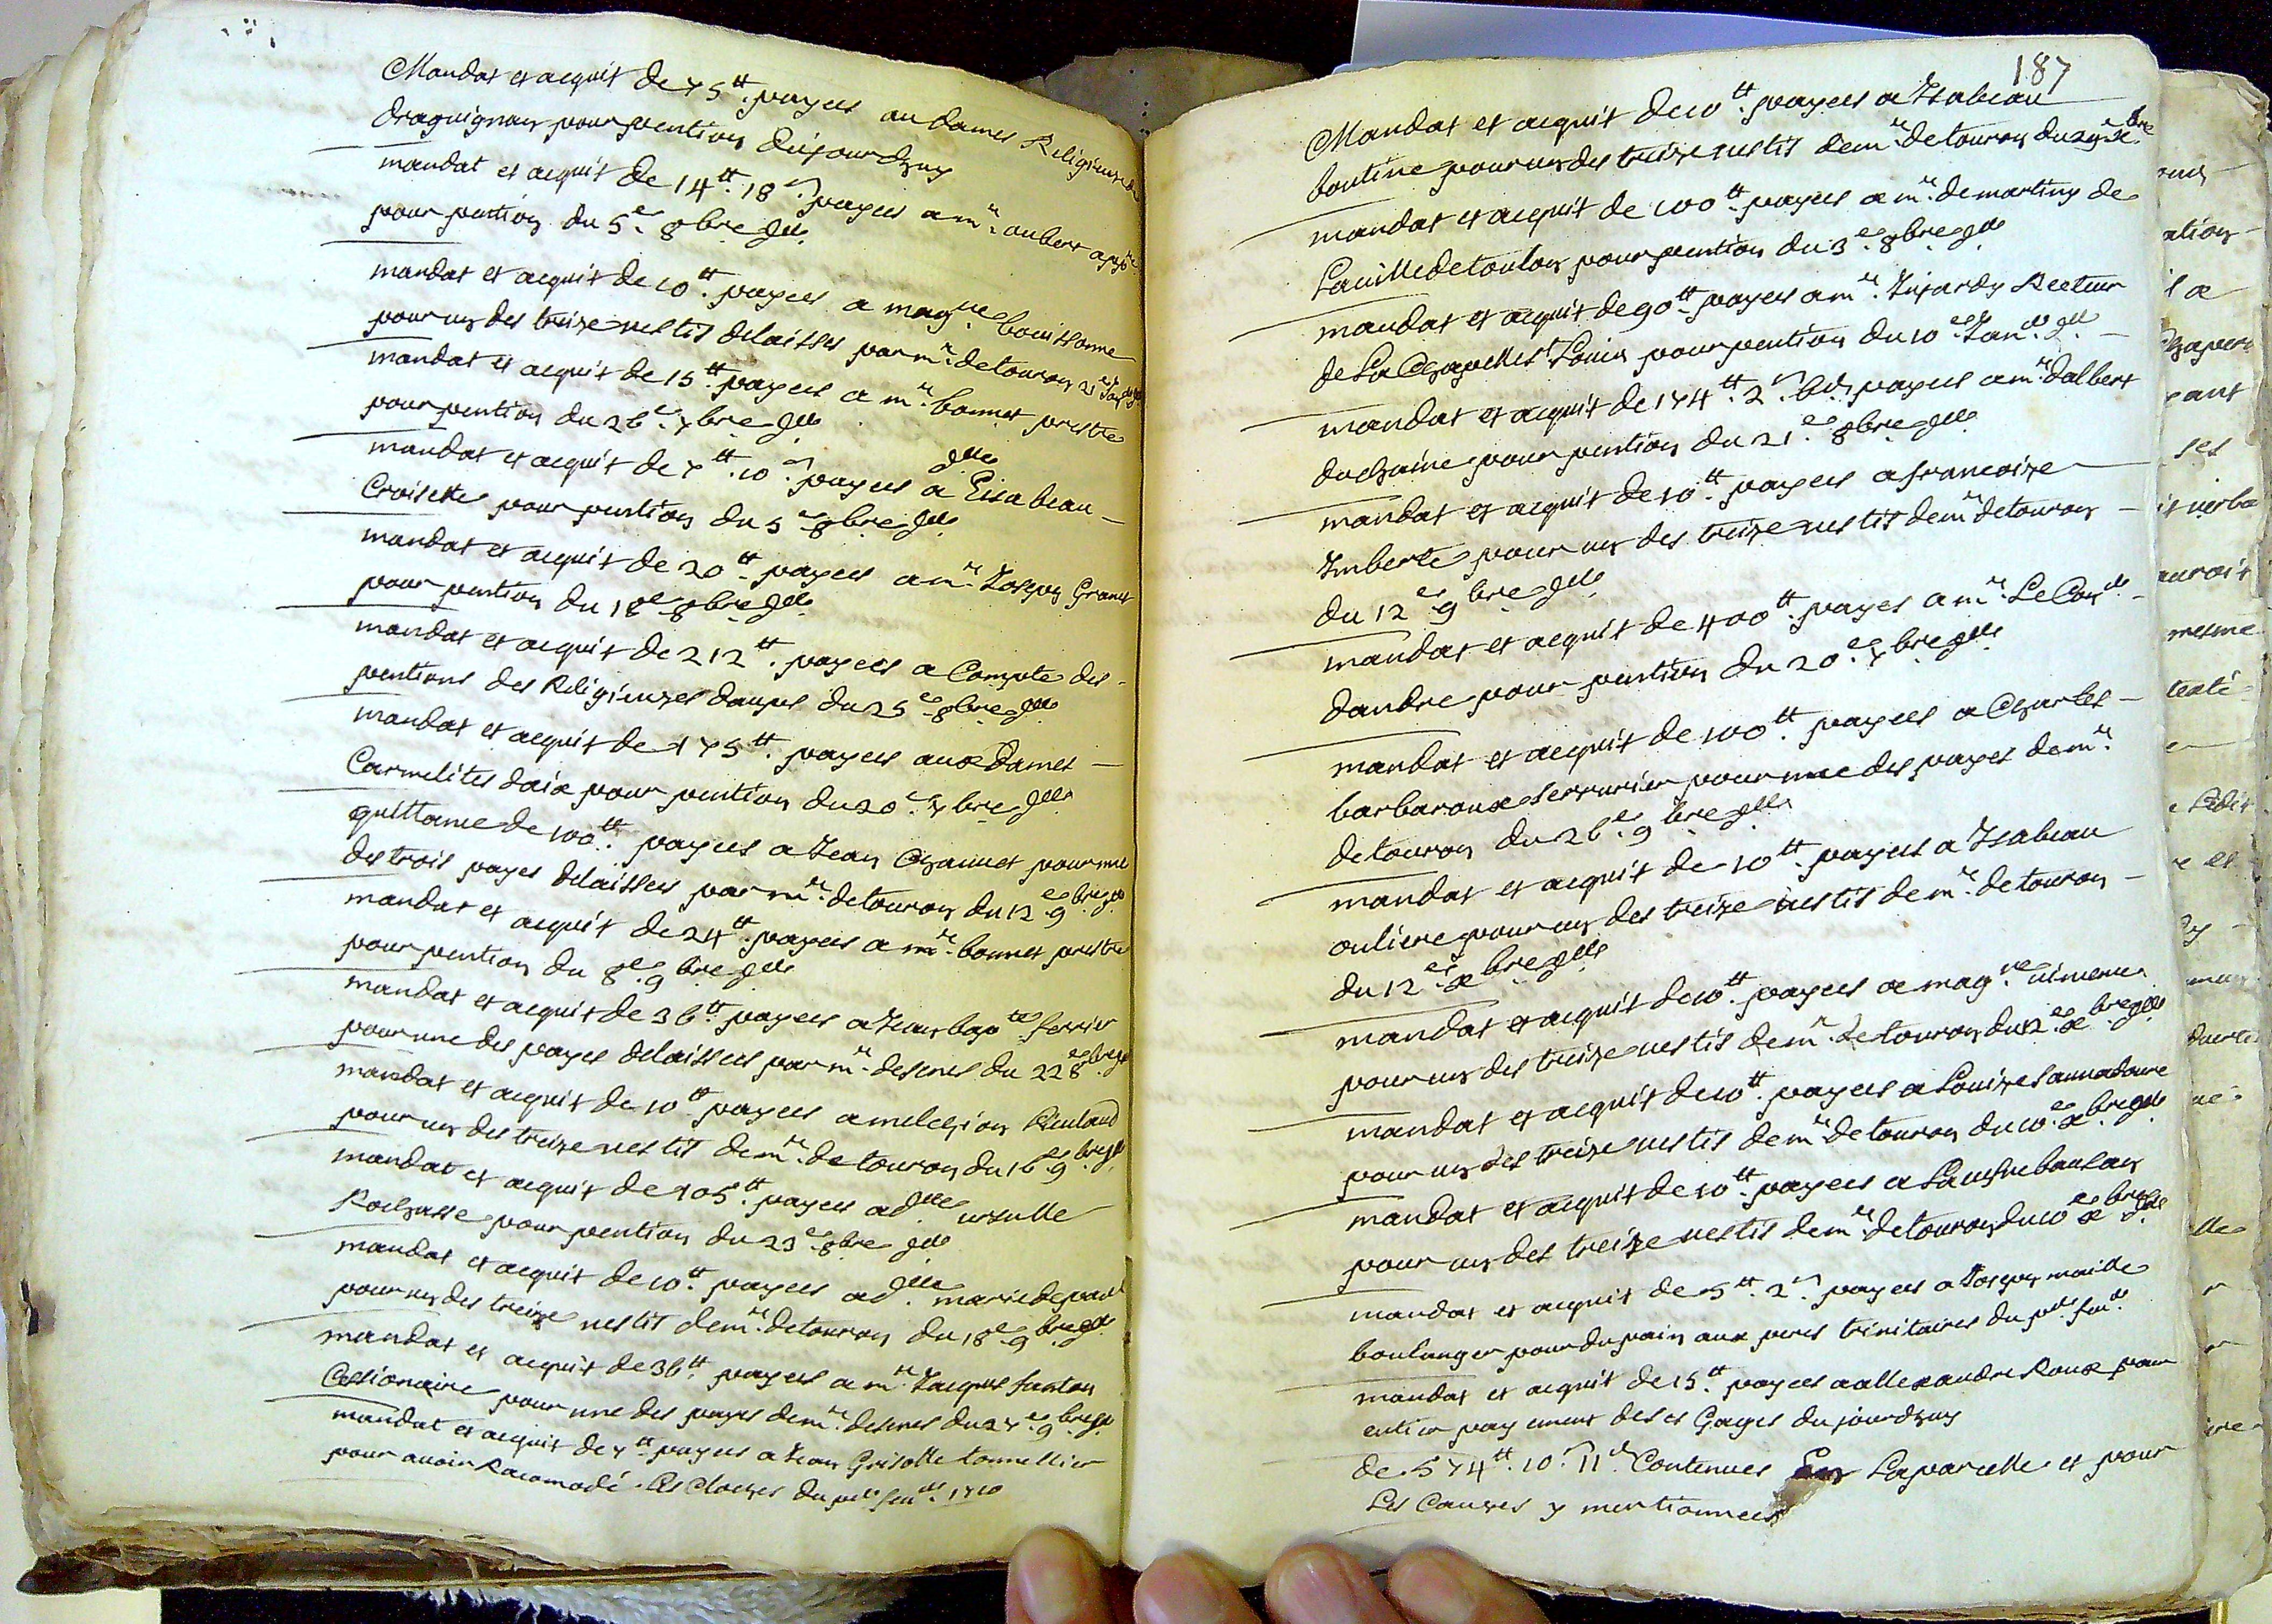 Mandat et acquit de 75 tt. payees au dames Religieuses
draguignan pour pention dujourdhuy
mandat et acquit de 14 tt. 18 s. payees a mre. aubert
pour pention du 5e. 8bre dte.
mandat et acquit de 10 tt. payees a magne bouissonne
pour un des treize vestis delaisses par mr. de touron 21e
mandat et acquit de 15 tt. payees a mre. bonnet prestre
pour pention du 26e. 7bre dte.
mandat et acquit de 7 tt. 10 s. payees a dlle Eisabeau
Croisette pour pention du 5e 8bre dte.
mandat et acquit de 20 tt. payees a mre. Joseph Granet
pour pention du 18e 8bre dte.
mandat et acquit de 212 tt. payees a Compte des
pentions des Religieuzes daups du 25e 8bre dte.
mandat et acquit de 175 tt. payees aux Dames
Carmelites daix pour pention du 20e 7bre dte.
quittance de 100 tt. payees a Jean Chauvet pour une
des trois payes delaissees par mr. de touron du 12e 9bre dte.
mandat et acquit de 24 tt. payees a mre. bonnet prestre
pour pention du 8e 9bre dte.
mandat et acquit de 36 tt. payees a Jean bapte ferrier
pour une des payes delaissees par mr. desenes du 22 8bre dte
mandat et acquit de 10 tt. payees a melchion Reulaud
pour un des treize vestis de mr. de touron du 16e 9bre dte
mandat et acquit de 105 tt. payees a dlle ursulle
Rochasse pour pention du 23e 8bre dte.
mandat et acquit de 10 tt. payees a dlle. marie de paul
pour un des treize vestis de mr. de touron du 18e 9bre dte.
mandat et acquit de 36 tt. payees a mre. Jacques fanton
Cessionaire pour une des payes de mr. desenes du 27e 9bre dte.
mandat et acquit de 7 tt payees a Jean Grisolle tonnellier
pour avoir Racomodé les Cloches du pr. feu. 1710
187
Mandat et acquit de 10 tt. payees a Isabeau
boutine pour un des treize vestis de mr. de touron du 29e xbre
mandat et acquit de 100 tt. payees a mr. de martiny de
La ville de toulon pour pention du 3e. 8bre dte
mandat et acquit de 90 tt payees a mre. Jujardy Recteur
de La Chapelle st Louis pour pention du 10e Janer. dte.
mandat et acquit de 174 tt. 2 s. 6 d. payees a mr. dalbert
duchaine pour pention du 21e 8bre dte.
mandat et acquit de 10 tt. payees a francoize
Imberte pour un des treize vestis de mr de touron
du 12e 9bre dte
mandat et acquit de 400 tt. payees a mr. Le Conr.
dandre pour pention du 20e. 7bre dte.
mandat et acquit de 100 tt. payees a Charles
barbaroux serrurier pour une des payes de mr.
de touron du 26e. 9bre dte.
mandat et acquit de 10 tt. payees a Isabeau
ouliere pour un des treize vestis de mr. de touron
du 12e. xbre dte
mandat et acquit de 10 tt. payees a magne
pour un des treize vestis de mr. de touron du 12e. xbre dte.
mandat et acquit de 10 tt. payees a Louize sannadaire
pour un des treize vestis de mr. de touron du 10e. xbre dte.
mandat et acquit de 10 tt. payees a
pour un des treize vestis de mr. de touron du 10e xbre dte
mandat et acquit de 5 tt. 2 s. payees a Joseph maille
boulanger pour du pain aux peres trinitaires du pr. feu.
mandat et acquit de 15 tt. payees a allexandre Roux pour
entier payement de ses Gages du jourdhuy
de 574 tt. 10 s. 11 d. Contenues En La parcelle et pour
Les Causes y mentionnees